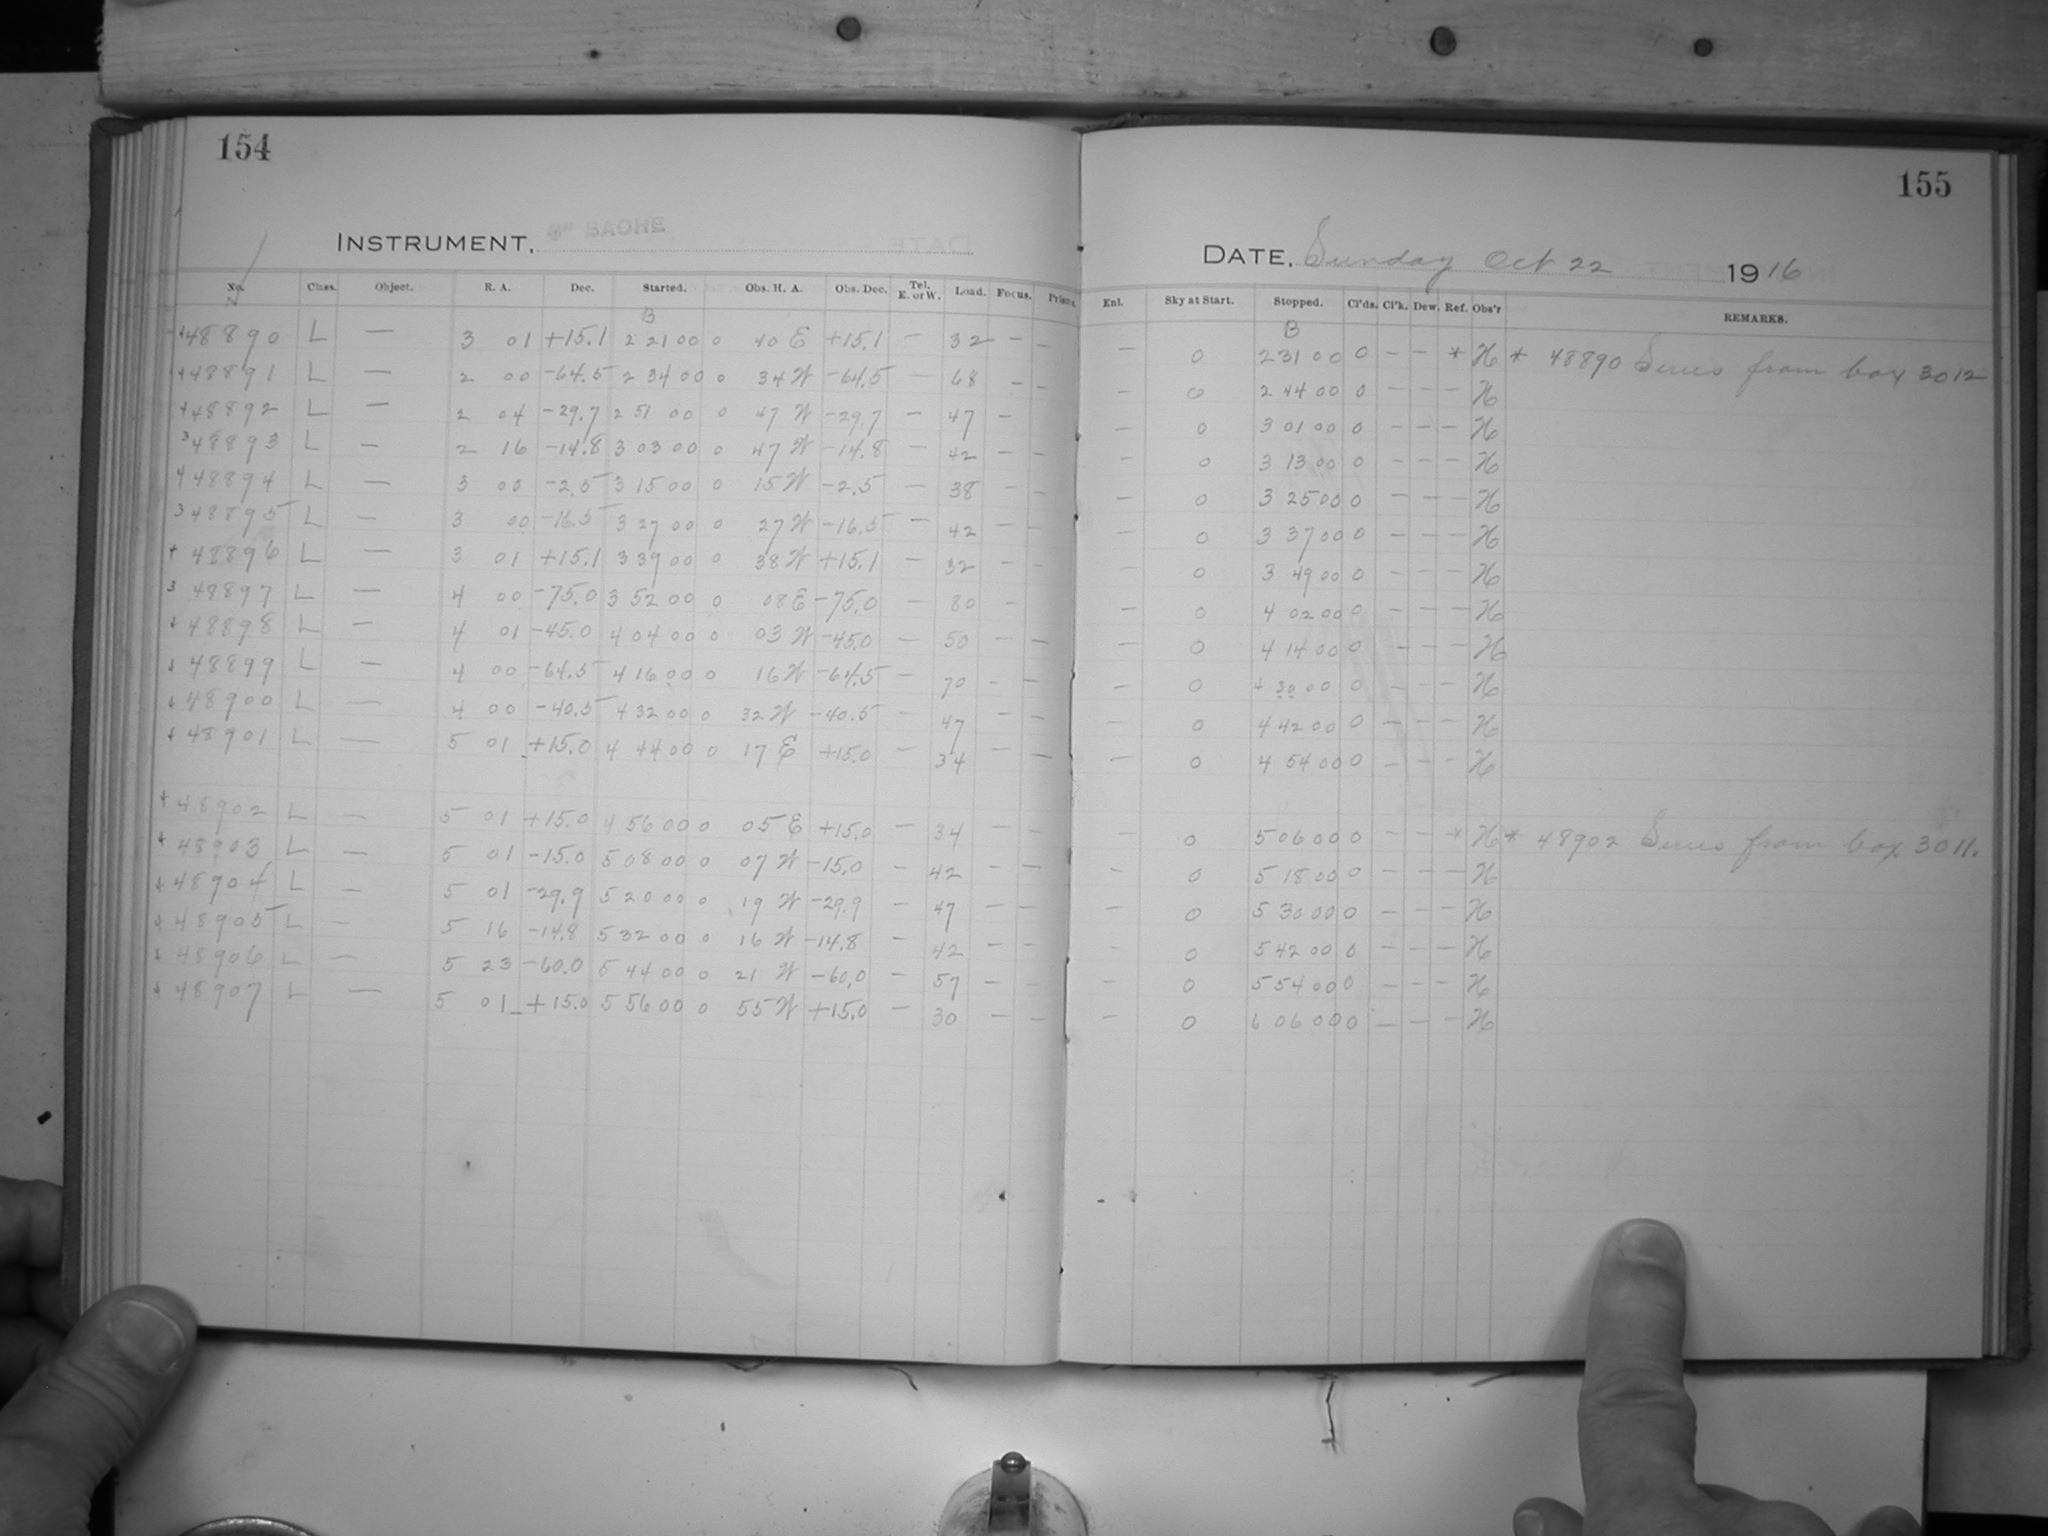 154
155
INSTRUMENT, 8" BACHE
DATE, Sunday Oct 22 1916
No. Class. Object. R. A. Dec. Started. Obs. H. A. Obs. Dec. Tel. E. or W. Load. Focus. Prisms. Enl. Sky at Start. Stopped. Cl'ds. Cl'k. Dew. Ref. Obs'r REMARKS.
N B B
48890 L — 3 01 +15.1 2 21 00 0 40 E +15.1 — 32 — — — 0 2 31 00 0 — — * H * 48890 Series from box 3012
48891 L — 2 00 -64.5 2 34 00 0 34 W -64.5 — 68 — — 0 2 44 00 0 — — — H
48892 L — 2 04 -29.7 2 51 00 0 47 W -29.7 — 47 — — 0 3 01 00 0 — — — H
3 48893 L — 2 16 -14.8 3 03 00 0 47 W -14.8 — 42 — — — 0 3 13 00 0 — — — H
4 48894 L — 3 00 -2.5 3 15 00 0 15 W -2.5 — 38 — — — 0 3 25 00 0 — — — H
3 48895 L — 3 00 -16.5 3 27 00 0 27 W -16.5 — 42 — — — 0 3 37 00 0 — — — H
48896 L — 3 01 +15.1 3 39 00 0 38 W +15.1 — 32 — — — 0 3 49 00 0 — — — H
3 48897 L — 4 00 -75.0 3 52 00 0 08 E -75.0 — 80 — — 0 4 02 00 0 — — — H
48898 L — 4 01 -45.0 4 04 00 0 03 W -45.0 — 50 — — — 0 4 14 00 0 — — — H
48899 L — 4 00 -64.5 4 16 00 0 16 W -64.5 — 70 — — — 0 4 30 00 0 — — — H
48900 L — 4 00 -40.5 4 32 00 0 32 W -40.5 — 47 — — — 0 4 42 00 0 — — — H
48901 L — 5 01 +15.0 4 44 00 0 17 E +15.0 — 34 — — 0 4 54 00 0 — — — H
48902 L — 5 01 +15.0 4 56 00 0 05 E +15.0 — 34 — — — 0 5 06 00 0 — — * H * 48902 Series from box 3011.
48903 L — 5 01 -15.0 5 08 00 0 07 W -15.0 — 42 — — — 0 5 18 00 0 — — — H
48904 L — 5 01 -29.9 5 20 00 0 19 W -29.9 — 47 — — — 0 5 30 00 0 — — — H
48905 L — 5 16 -14.8 5 32 00 0 16 W -14.8 — 42 — — 0 5 42 00 0 — — — H
48906 L — 5 23 -60.0 5 44 00 0 21 W -60.0 — 57 — — — 0 5 54 00 0 — — — H
48907 L — 5 01 +15.0 5 56 00 0 55 W +15.0 — 30 — — — 0 6 06 00 0 — — — H